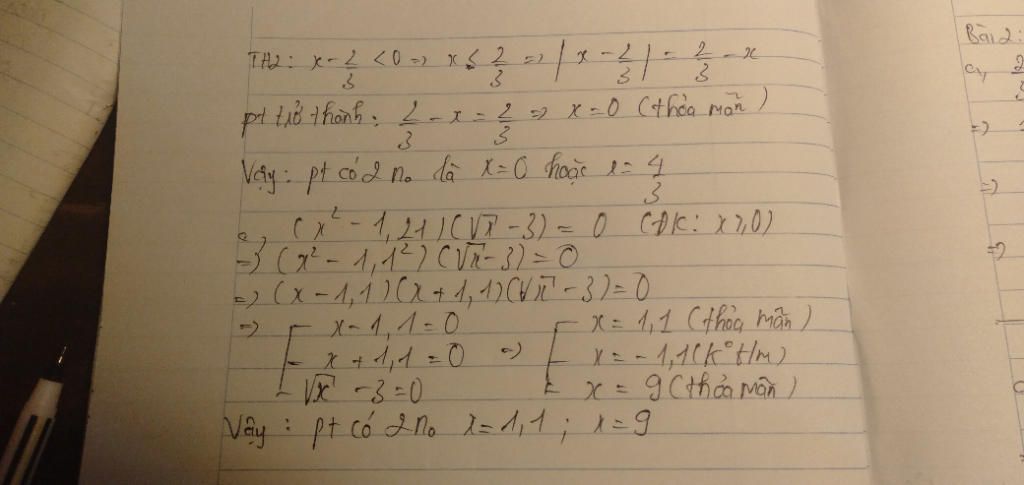 TH2: x - 2/3 < 0 => x ≤ 2/3 => |x - 2/3| = 2/3 - x
pt trở thành: 2/3 - x = 2/3 => x = 0 (thỏa mãn)
Vậy: pt có 2 no là x = 0 hoặc x = 4/3
c, (x² - 1,21)(√x - 3) = 0 (ĐK: x ≥ 0)
=> (x² - 1,1²)(√x - 3) = 0
=> (x - 1,1)(x + 1,1)(√x - 3) = 0
=> [ x - 1,1 = 0 [ x = 1,1 (thỏa mãn)
x + 1,1 = 0 => x = -1,1 (K° t/m)
√x - 3 = 0 x = 9 (thỏa mãn)
Vậy: pt có 2 no x = 1,1 ; x = 9
Bài 2:
a,
=>
=>
=>